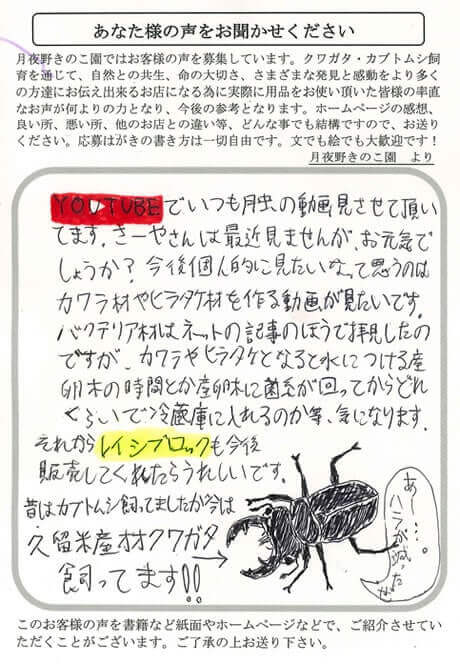 あなた様の声をお聞かせください
月夜野きのこ園ではお客様の声を募集しています。クワガタ・カブトムシ飼
育を通じて、自然との共生、命の大切さ、さまざまな発見と感動をより多く
の方達にお伝え出来るお店になる為に実際に用品をお使い頂いた皆様の率直
なお声が何よりの力となり、今後の参考となります。ホームページの感想、
良い所、悪い所、他のお店との違い等、どんな事でも結構ですので、お送り
ください。応募はがきの書き方は一切自由です。文でも絵でも大歓迎です！
月夜野きのこ園　より
YOUTUBEでいつも月虫の動画見させて頂い
てます。さーやさんは最近見ませんが、お元気で
しょうか？今後個人的に見たいなって思うのは
カワラ材やヒラタケ材を作る動画が見たいです。
バクテリア材はネットの記事のほうで拝見したの
ですが、カワラやヒラタケとなると水につける産
卵木の時間とか産卵木に菌糸が回ってからどれ
くらいで冷蔵庫に入れるのか等、気になります。
それからレイシブロックも今後
販売してくれたらうれしいです。
昔はカブトムシ飼ってましたが今は
久留米産オオクワガタ
飼ってます!!
あ〜…。
ハラが減ったぜ
このお客様の声を書籍など紙面やホームページなどで、ご紹介させてい
ただくことがございます。ご了承の上お送り下さい。